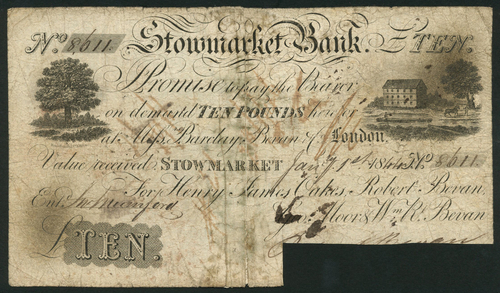 No. 8611 Stowmarket Bank. £TEN.
I Promise to pay the Bearer
on demand TEN POUNDS here or
at Messrs. Barclay, Bevan & Co. London.
Value received STOWMARKET Jany 1st 1844 No 8611
For Henry James Oakes, Robert Bevan
Entd.
Moor & Wm. R. Bevan
£TEN.
Bevan